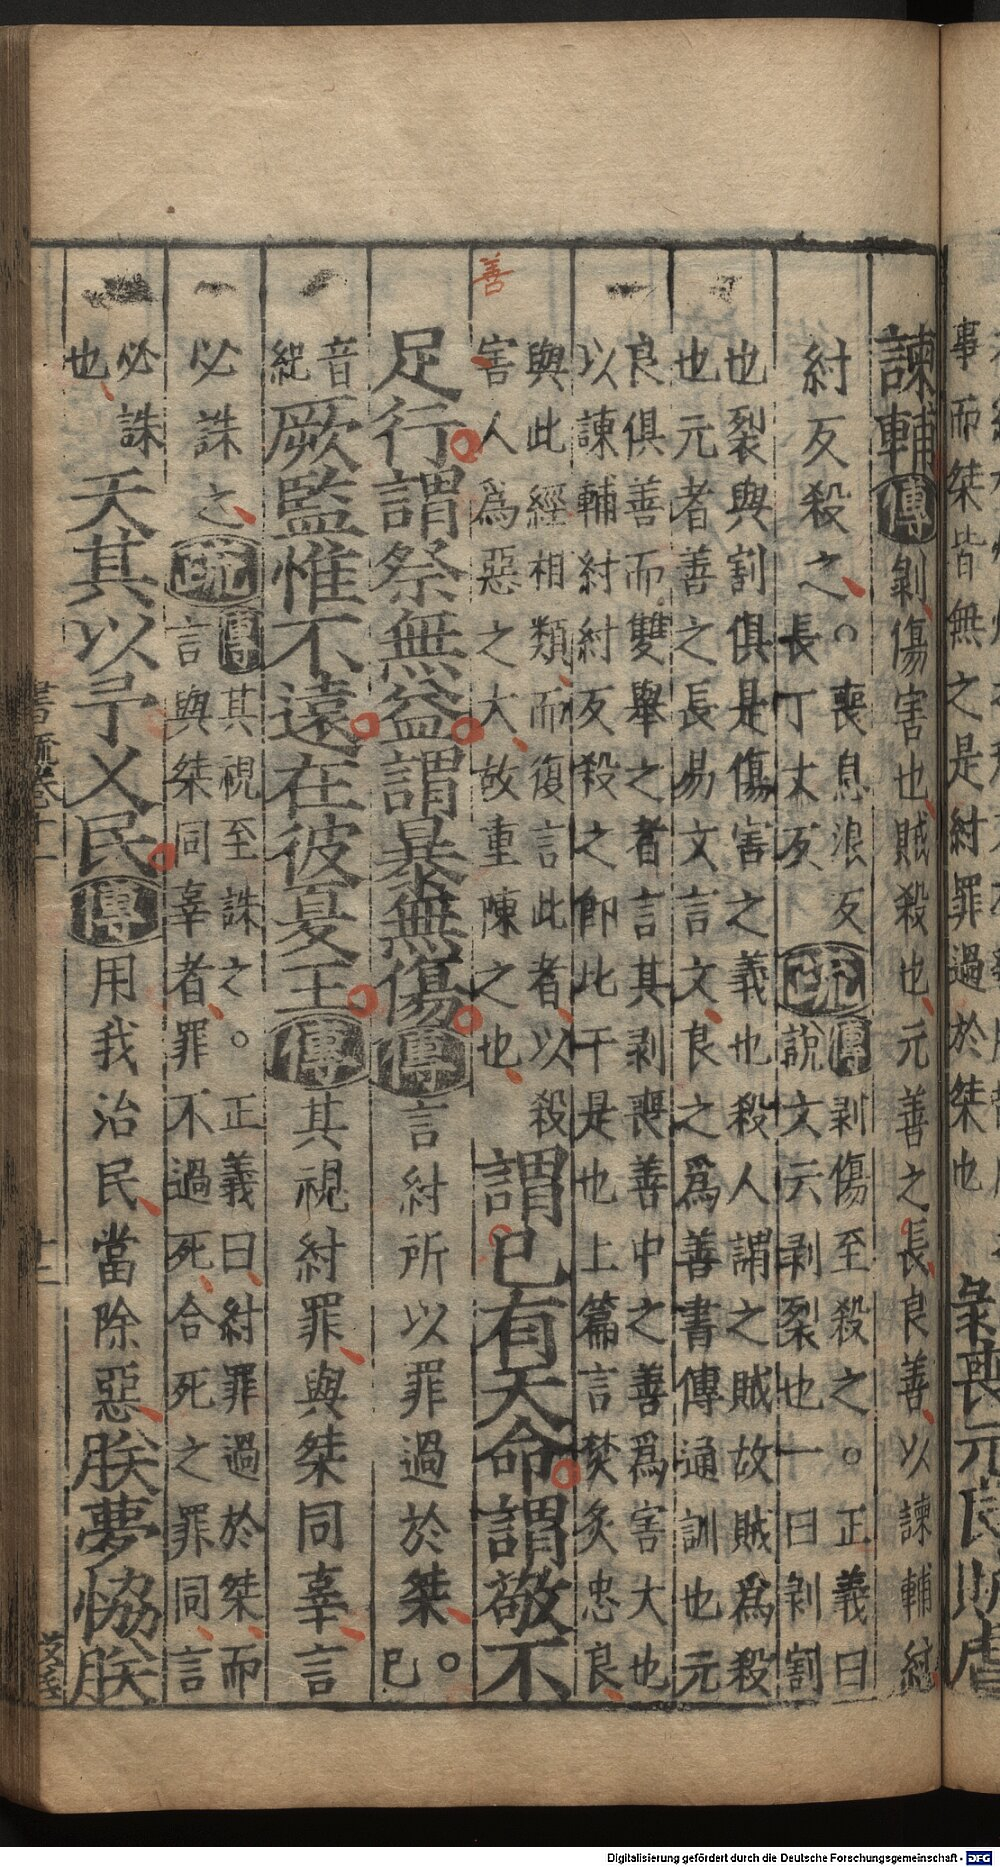 事而桀皆無之是紂罪過於桀也
諫輔傳剝傷害也賊殺也元善之長良善以諫輔紂
紂反殺之○喪息浪反
長丁丈反
疏傳剥傷至殺之○正義曰
說文云剥裂也一曰剥割
也裂與割俱是傷害之義也殺人謂之賊故賊爲殺
也元者善之長易文言文良之爲善書傳通訓也元
良俱善而雙舉之者言其剥喪善中之善爲害大也
以諫輔紂紂反殺之卽此干是也上篇言焚炙忠良
與此經相類而復言此者以殺
害人爲惡之大故重陳之也
謂已有天命謂敬不
足行謂祭無益謂暴無傷傳言紂所以罪過於桀○已
音
紀
厥監惟不遠在彼夏王傳其視紂罪與桀同辜言
必誅之疏傳其視至誅之○正義曰紂罪過於桀而
言與桀同辜者罪不過死合死之罪同言
必誅
也
天其以予乂民傳用我治民當除惡朕夢恊朕
書疏卷十一
十二
善
Digitalisierung gefördert durch die Deutsche Forschungsgemeinschaft - DFG